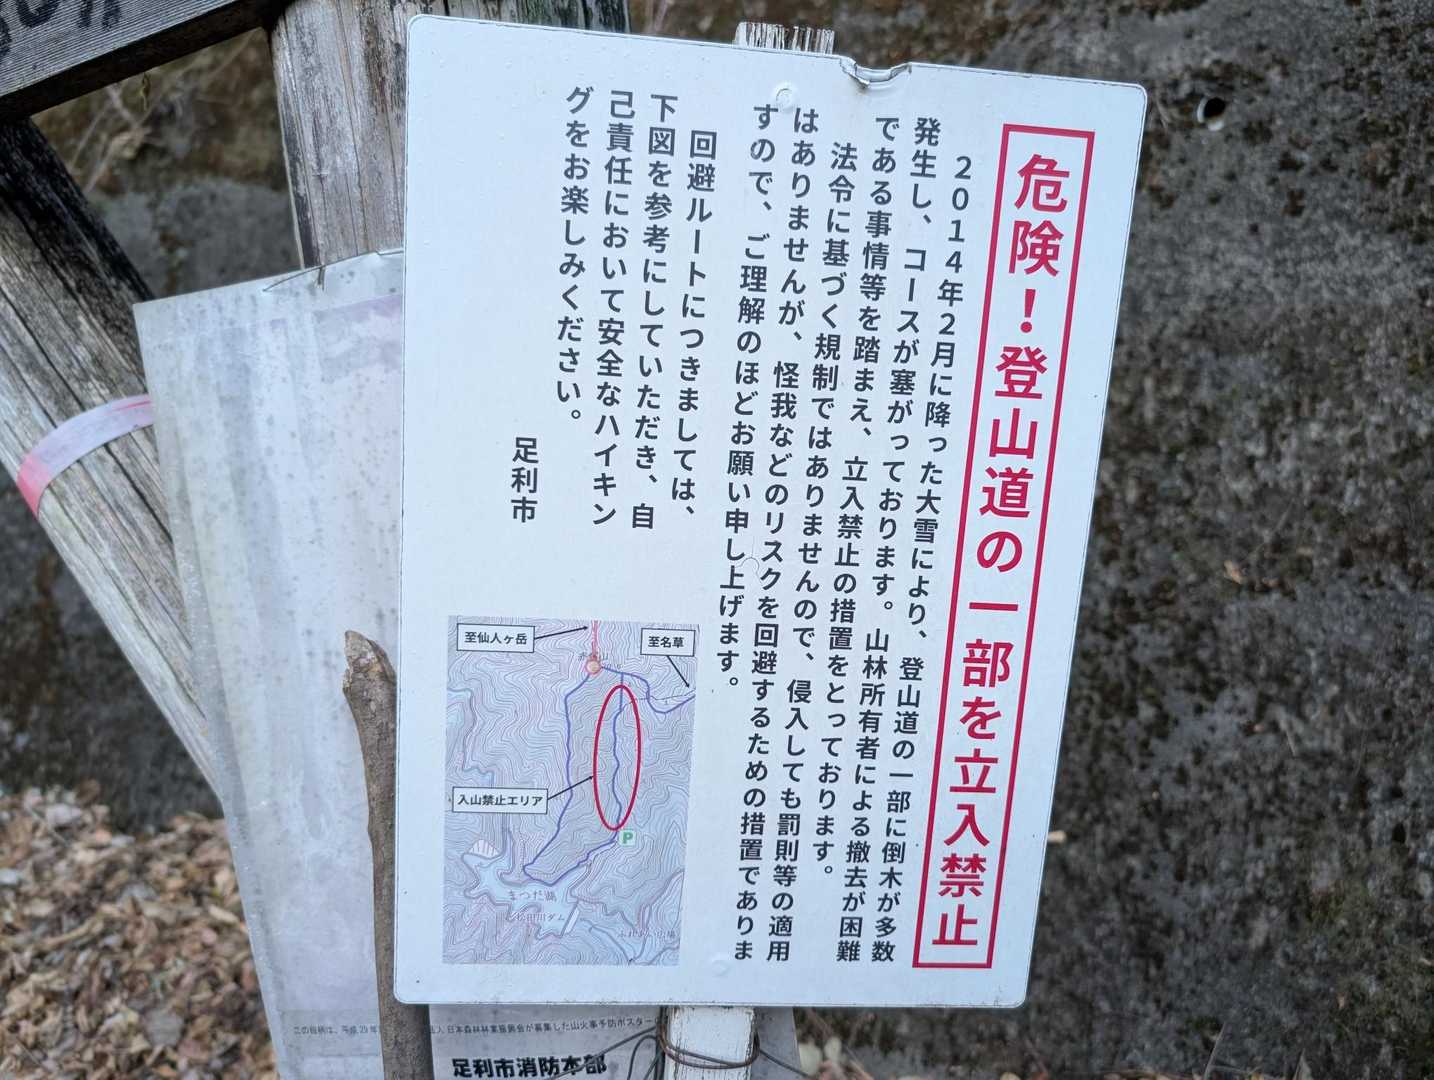 危険！登山道の一部を立入禁止
２０１４年２月に降った大雪により、登山道の一部に倒木が多数
発生し、コースが塞がっております。山林所有者による撤去が困難
である事情等を踏まえ、立入禁止の措置をとっております。
法令に基づく規制ではありませんので、侵入しても罰則等の適用
はありませんが、怪我などのリスクを回避するための措置でありま
すので、ご理解のほどお願い申し上げます。
回避ルートにつきましては、
下図を参考にしていただき、自
己責任において安全なハイキン
グをお楽しみください。
足利市
至仙人ヶ岳
至名草
入山禁止エリア
P
まつだ湖
松田川ダム
ふれあい広場
この絵柄は、平成29年
日本森林林業振興会が募集した山火事予防ポスターの
足利市消防本部